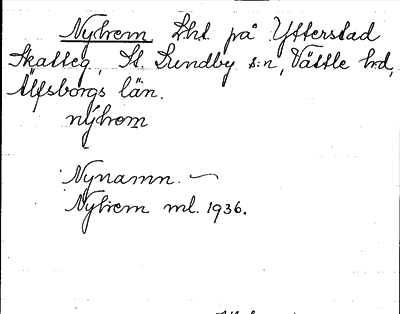 Nyhem Lht. på Ytterstad
Skatteg, St. Lundby s:n, Vättle hd,
Älfsborgs län.
nýhem
Nynamn. —
Nyhem ml. 1936.